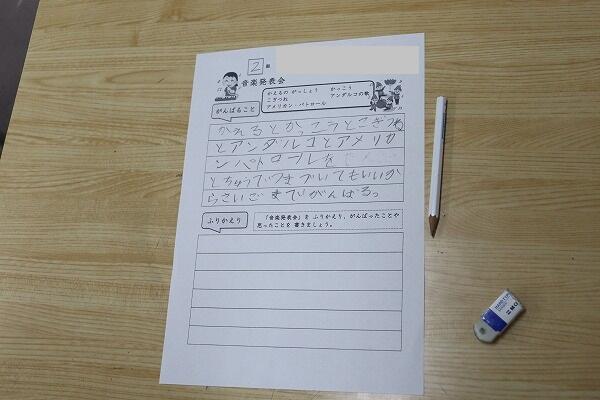 2 組
音楽発表会
かえるの がっしょう かっこう
こぎつね アンダルコの歌
アメリカン・パトロール
がんばること
かえるとかっこうとこぎつね
とアンダルコとアメリカ
ンパトロールを
とちゅうでつまづいてもいいか
らさいごまでがんばるっ
ふりかえり
「音楽発表会」を ふりかえり、がんばったことや
思ったことを 書きましょう。
MONO